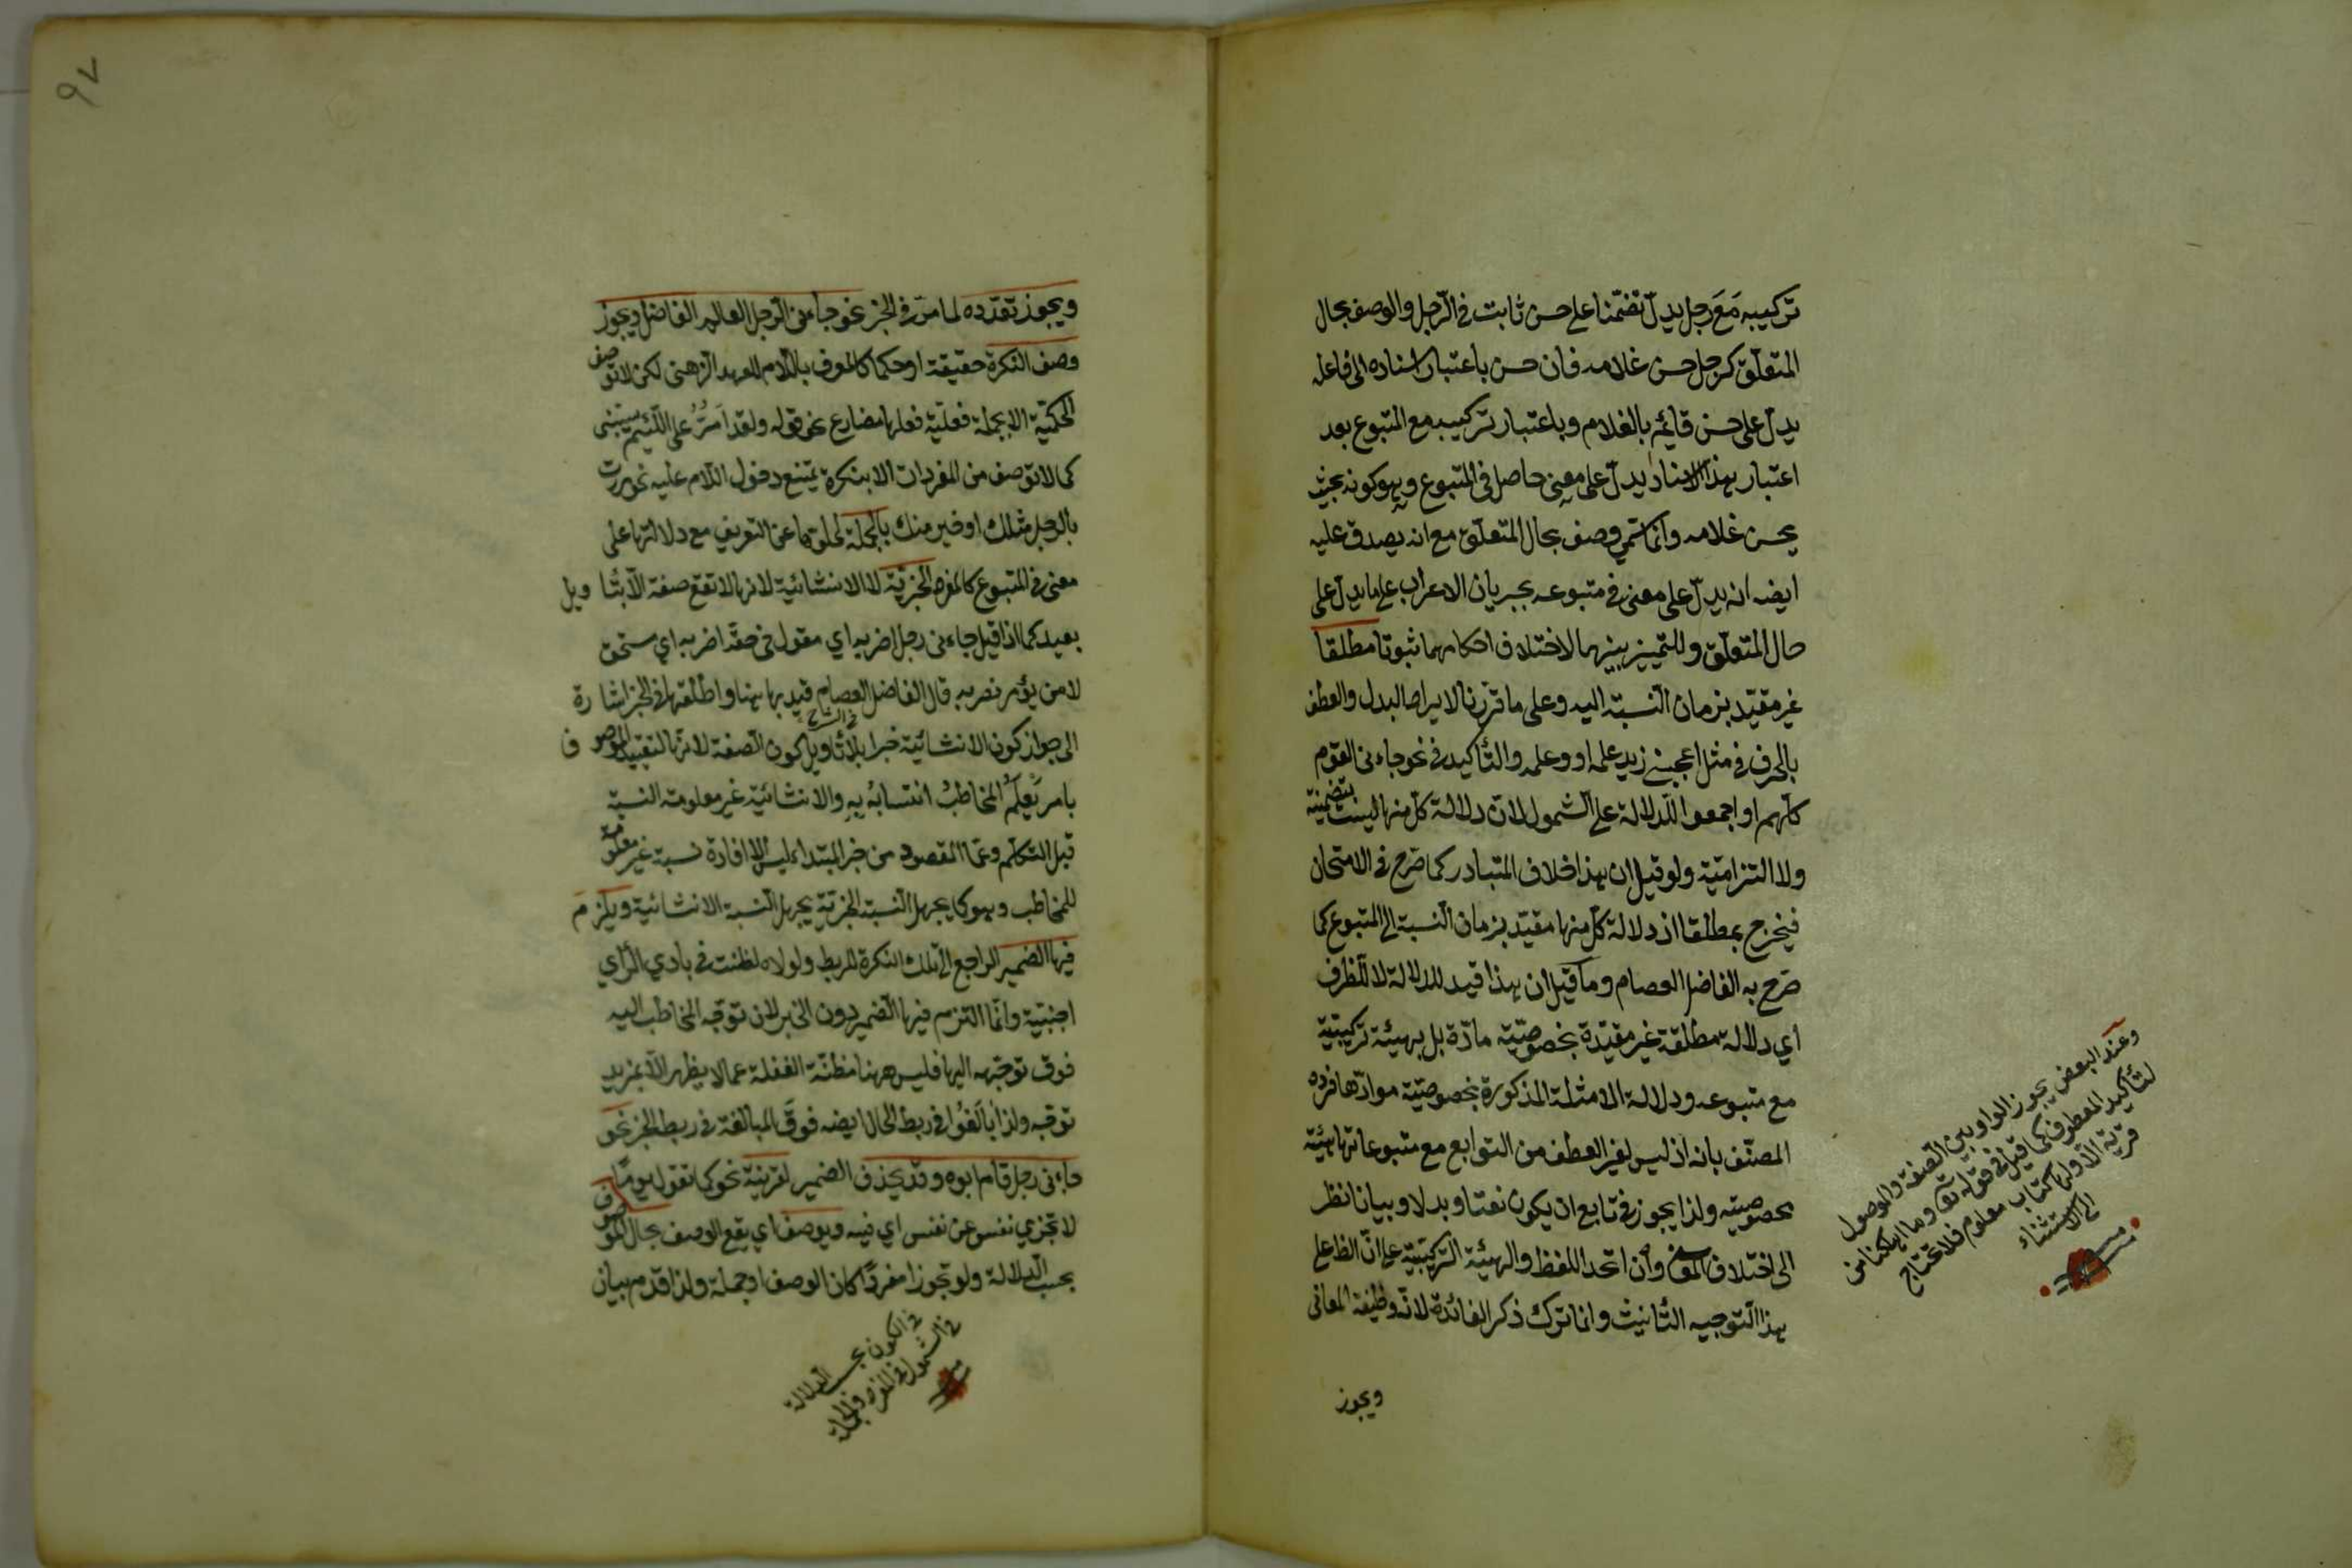 تركيبه مَعَ رجل يدلّ تضمّنا على حسن ثابت فى الرّجل والوصف بحال
المتعلّق كرجل حسن غلامه فان حسن باعتبار اسناده الى فاعله
يدلّ على حسن قائم بالغلام وباعتبار تركيبه مع المتبوع بعد
اعتبار هذا الاسناد يدلّ على معنى حاصل فى المتبوع وهو كونه بحيث
يحسن غلامه وانّما سمّي وصف بحال المتعلّق مع انه يصدق عليه
ايضه انه يدلّ على معنى فى متبوعه بجريان الاعراب على ما يدلّ على
حال المتعلّق وللتّمييز بينهما لاختلاف احكامهما ثبوتا مطلقا
غير مقيّد بزمان النّسبة اليه وعلى ما قرّرنا لا يراد البدل والعطف
بالحرف فى مثل اعجبنى زيد علمه او وعلمه والتّأكيد فى نحو جاءنى القوم
كلّهم او اجمعوا للدّلالة على الشّمول لانّ دلالة كلّ منها ليست بتضمنية
ولا التزاميّة ولو قيل ان هذا خلاف المتبادر كما صرّح فى الامتحان
فيخرج بمطلقا اذ دلالة كلّ منها مقيّد بزمان النّسبة الى المتبوع كما
صرّح به الفاضل العصام وما قيل ان هذا قيد للدلالة لا للظرف
اي دلالة مطلقة غير مقيّدة بخصوصيّة مادّة بل بهيئة تركيبيّة
مع متبوعه ودلالة الامثلة المذكورة بخصوصيّة موادّها فردّه
المصنّف بانه اذ ليس لغير العطف من التوابع مع متبوعاتها هيئة
مخصوصيّة ولذا يجوز فى تابع ان يكون نعتا وبدلا وبيانا نظر
الى اختلاف المعنى وان اتّحد اللفظ والهيئة التركيبيّة على انّ الظ على
هذا التّوجيه التّأنيث وانما ترك ذكر الفائدة لانّه وظيفة المعانى
ويجوز
وعند البعض يجوز الواو بين الصّفة والموصول
لتأكيد المعطوف كما قيل فى قوله تع وما اهلكنا من
قرية الّا ولها كتاب معلوم فلا تحتاج
الى الاستثناء
ويجوز تعدّده لما مرّ فى الخبر نحو جاءنى الرّجل العالم الفاضل ويجوز
وصف النكرة حقيقة او حكما كالمعرف باللّام للعهد الذّهنى لكن لا توصف
الحكميّة الا بجملة فعليّة فعلها مضارع نحو قوله ولقد اَمُرُّ على اللّئيم يسبّنى
كما لا توصف من المفردات الا بنكرة يمتنع دخول اللّام عليه نحو مررت
بالرجل مثلك او خير منك بالجملة لخلوّها عن التعريف مع دلالتها على
معنى فى المتبوع كالمفرد الخبريّة لا الانشائيّة لانها لا تقع صفة الّا بتأويل
بعيد كما اذا قيل جاءنى رجل اضربه اي مقول فى حقّه اضربه اي مستحق
لا من يؤمر بضربه قال الفاضل العصام قيد بها هنا واطلقها فى الخبر اشارة
فى الشّرح
الى جواز كون الانشائيّة خبرا بلا تأويل كون الصّفة لانّها لتقييد الموصوف
بامر يَعلَمُ المخاطبُ انتسابهُ بهِ والانشائيّة غير معلومة النسبة
قبل التكلّم وعمّا المقصود من خبر المبتداء ليس الّا افادة نسبة غير معلومة
للمخاطب وهو كما يجهل النّسبة الخبريّة يجهل النّسبة الانشائية ويلزَمَ
فيها الضمير الراجع الى تلك النكرة للربط ولولاه لظنت فى بادي الرّأي
اجنبيّة وانّما التزم فيها الضّمير دون الخبر لان توجّه المخاطب اليه
فوق توجّهه اليها فليس ههنا مظنّة الغفلة عما لا يظهر الّا بمزيد
توجّه ولذا بالغُوا فى ربط الحال ايضه فوقَ المبالغة فى ربط الخبر نحو
جاءنى رجل قام ابوه وقد يحذف الضمير لقرينة نحو كما تقول يومًا
لا تجزي نفس عن نفس اي فيه ويوصف اي يقع الوصف بحال الموصوف
بحسب الدّلالة ولو تجوزا مفردًا كان الوصف او جملة ولذا قدّم بيان
فى الكون بحسب الدّلالة
فى الشّمول فى المفرد والجملة